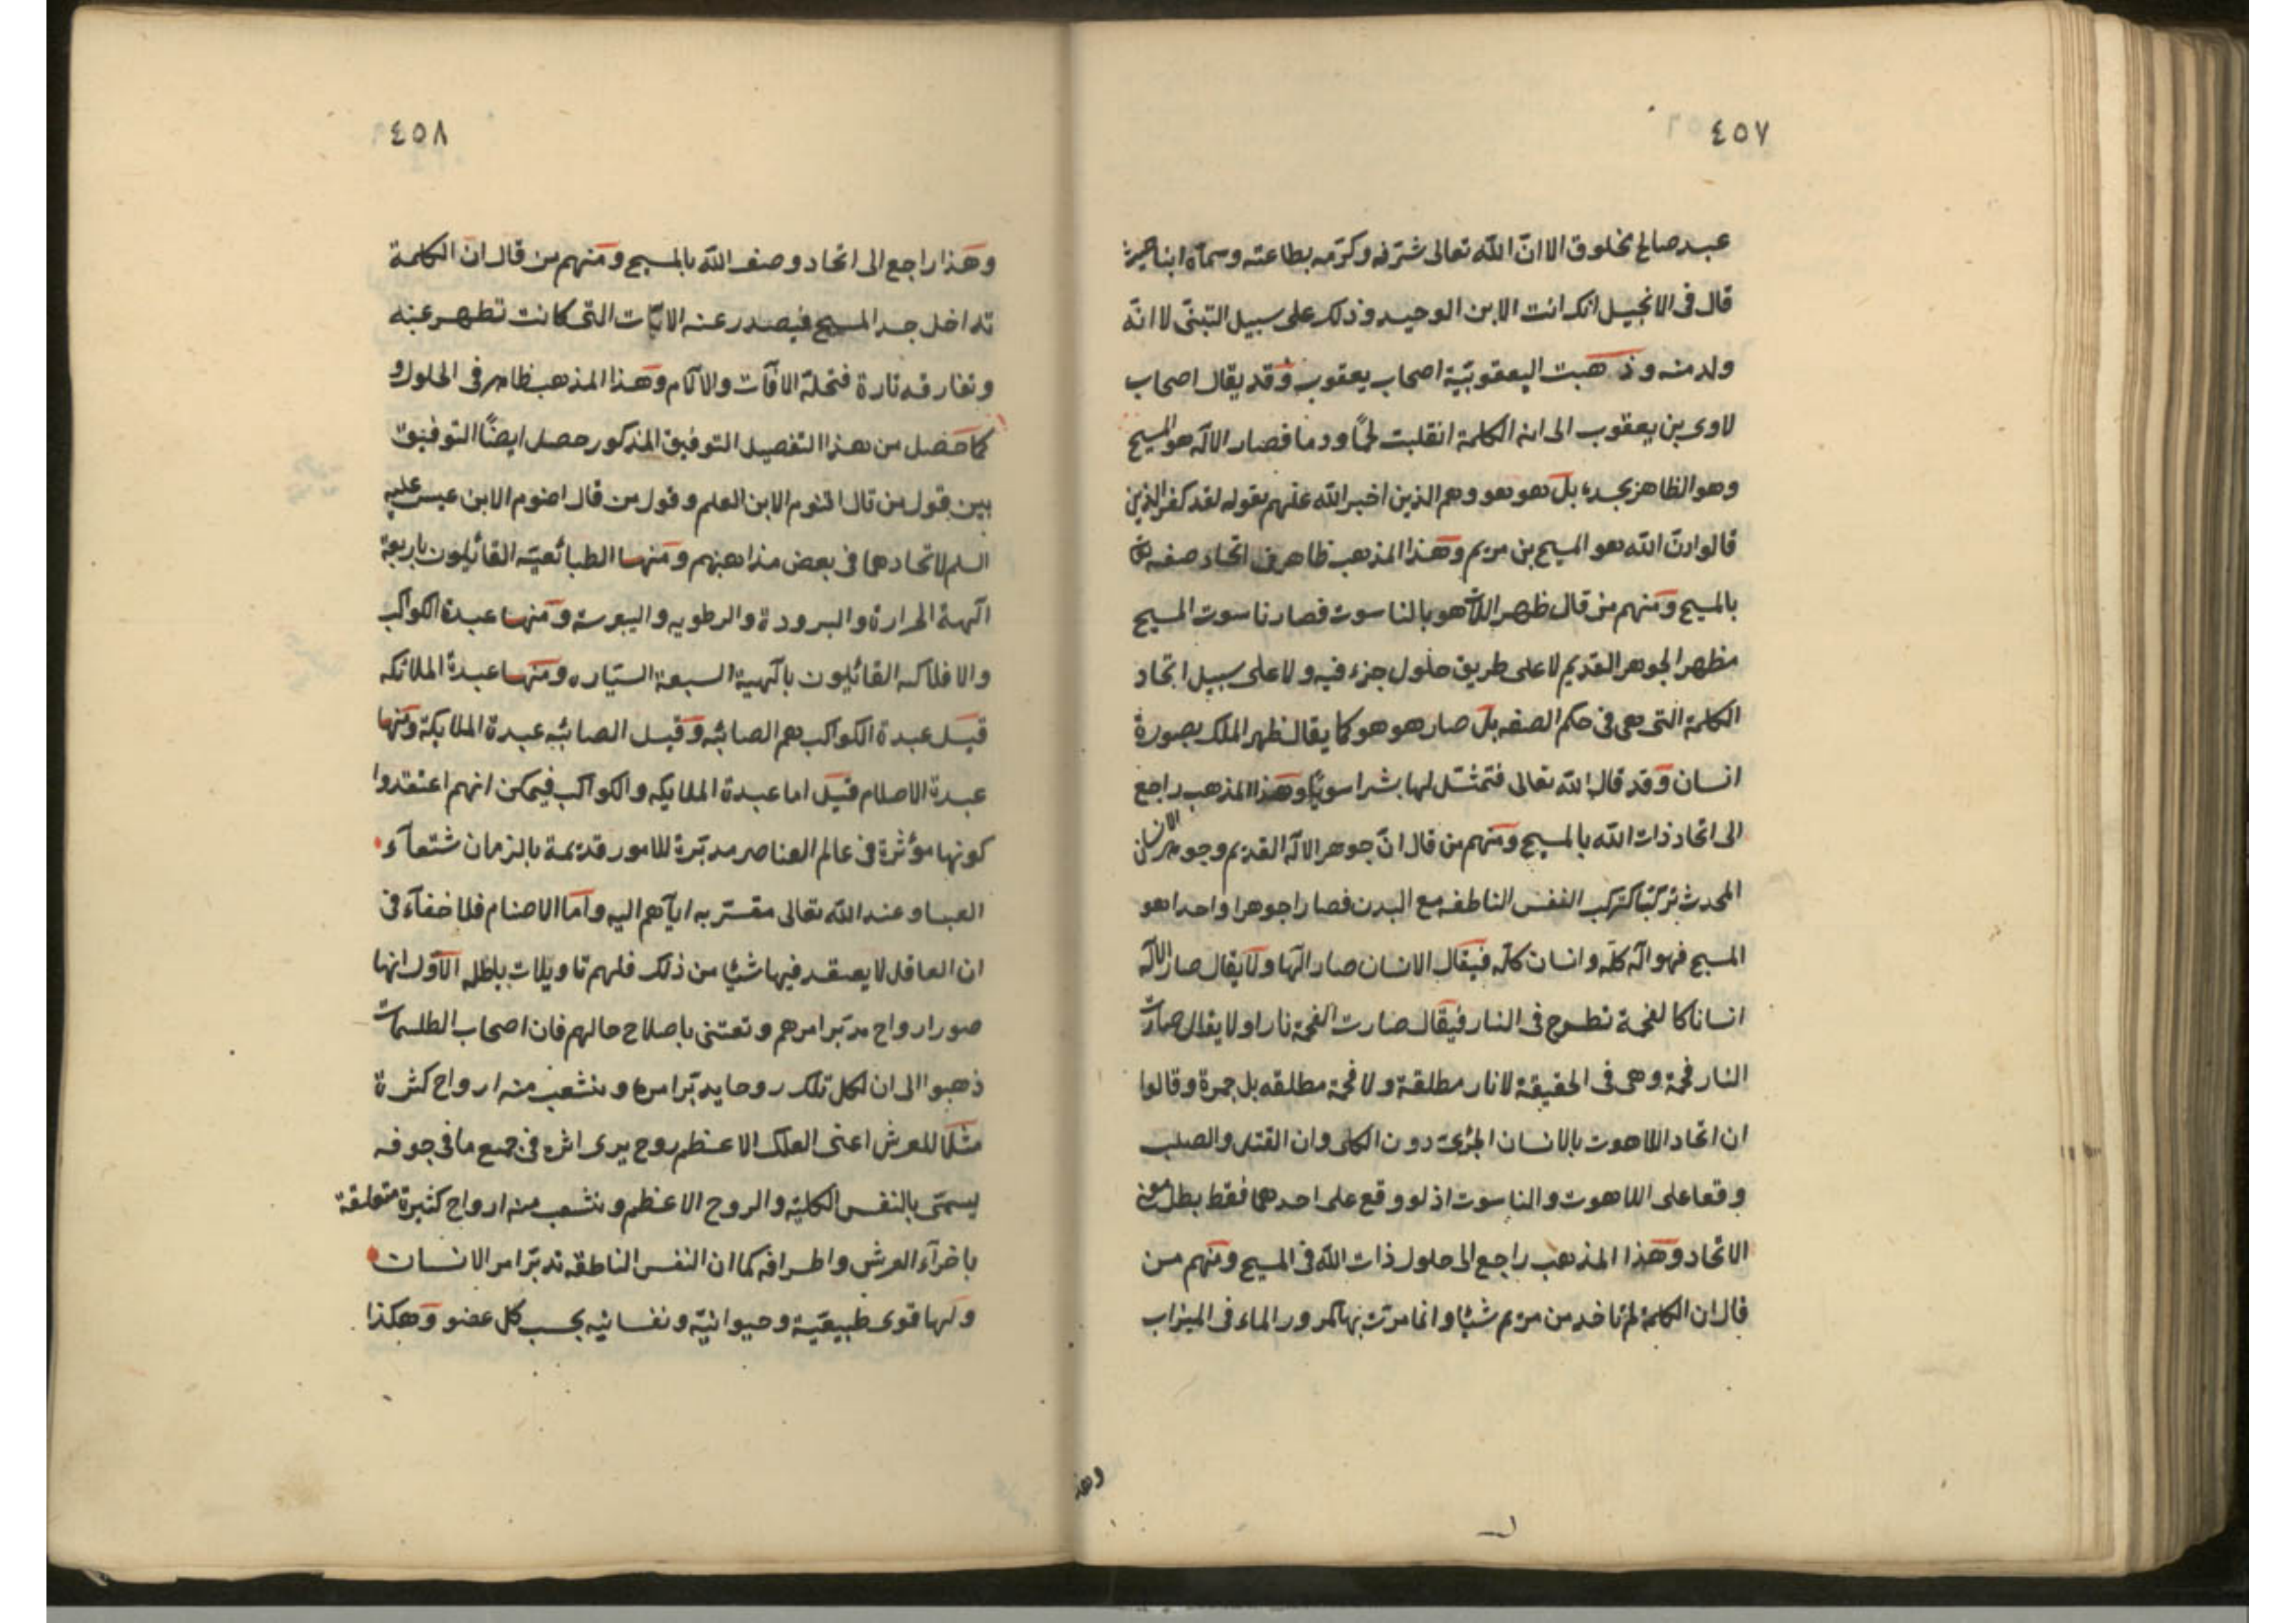 ٤٥٧
عبد صالح مخلوق الا انّ الله تعالى شرّفه وكرّمه بطاعته وسماه ابنا حيث
قال فى الانجيل انك انت الابن الوحيد وذلك على سبيل التبنّى لا انّه
ولد منه وذهبت اليعقوبيّة اصحاب يعقوب وقد يقال اصحاب
لاوى بن يعقوب الى انه الكلمة انقلبت لحمًا ودما فصار الاله هو المسيح
وهو الظاهر بجسده بل هو هو وهم الذين اخبر الله عنهم بقوله لقد كفر الذين
قالوا انّ الله هو المسيح بن مريم وهذا المذهب ظاهر فى اتحاد صفه
بالمسيح ومنهم من قال ظهر اللاهو بالناسوت فصار ناسوت المسيح
مظهر الجوهر القديم لا على طريق حلول جزء فيه ولا على سبيل اتحاد
الكلمة التى هى فى حكم الصفه بل صار هو هو كما يقال ظهر الملك بصورة
انسان وقد قال الله تعالى فتمثّل لها بشرا سويّا وهذا المذهب راجع
الى اتحاد ذات الله بالمسيح ومنهم من قال انّ جوهر الاله القديم وجوهر الانسان
المحدث تركّبا كتركب النفس الناطقه مع البدن فصارا جوهرا واحدا هو
المسيح فهو اله كلّه وانسان كلّه فيقال الانسان صار الها ولا يقال صار الاله
انسانا كالفحمة تطرح فى النار فيقال صارت الفحمة نارا ولا يقال صارت
النار فحمة وهى فى الحقيقة لا نار مطلقة ولا فحمة مطلقه بل جمرة وقالوا
ان اتحاد اللاهوت بالانسان الجزئى دون الكلى وان القتل والصلب
وقعا على اللاهوت والناسوت اذ لو وقع على احدهما فقط بطل
الاتحاد وهذا المذهب راجع الى حلول ذات الله فى المسيح ومنهم من
قال ان الكلمة لم تاخد من مريم شيئا وانما مرّت بها كمرور الماء فى الميزاب
وهذ
٤٥٨
وهذا راجع الى اتحاد وصف الله بالمسيح ومنهم من قال ان الكلمة
تداخل جسد المسيح فيصدر عنه الايات التى كانت تظهر عنه
وتفارقه تارة فتحلّه الافات والالام وهذا المذهب ظاهر فى الحلول و
كما حصل من هذا التفصيل التوفيق المذكور حصل ايضًا التوفيق
بين قول من قال اقنوم الابن العلم وقول من قال اقنوم الابن عيسى عليه
السلم لاتحادهما فى بعض مذاهبهم ومنها الطبائعيّه القائلون باربعة
الهة الحرارة والبرودة والرطوبه واليبوسة ومنها عبدة الكواكب
والافلاك القائلون بالهية السبعة السيّاره ومنها عبدة الملائكه
قيل عبدة الكواكب هم الصائبه وقيل الصائبه عبدة الملايكة ومنها
عبدة الاصنام قيل اما عبدة الملايكه والكواكب فيمكن انهم اعتقدوا
كونها مؤثرة فى عالم العناصر مدبّرة للامور قديمة بالزمان شفعآء
العباد عند الله تعالى مقتربه اياهم اليه واما الاصنام فلا خفآء فى
ان العاقل لا يعتقد فيها شيئا من ذلك فلهم تاويلات باطله الاوّل انها
صور ارواح مدبّر امرهم وتعتنى باصلاح حالهم فان اصحاب الطلسمات
ذهبوا الى ان لكل فلك روحا يدبّر امره وينشعب منه ارواح كثرة
مثلا للعرش اعنى الفلك الاعظم روح يرى اثره فى جميع ما فى جوفه
يسمّى بالنفس الكليّه والروح الاعظم وينشعب منه ارواح كثيرة متعلقة
باجزآء العرش واطرافه كما ان النفس الناطقه تدبّر امر الانسان
ولها قوى طبيعيّة وحيوانيّة ونفسانيه بحسب كل عضو وهكذا